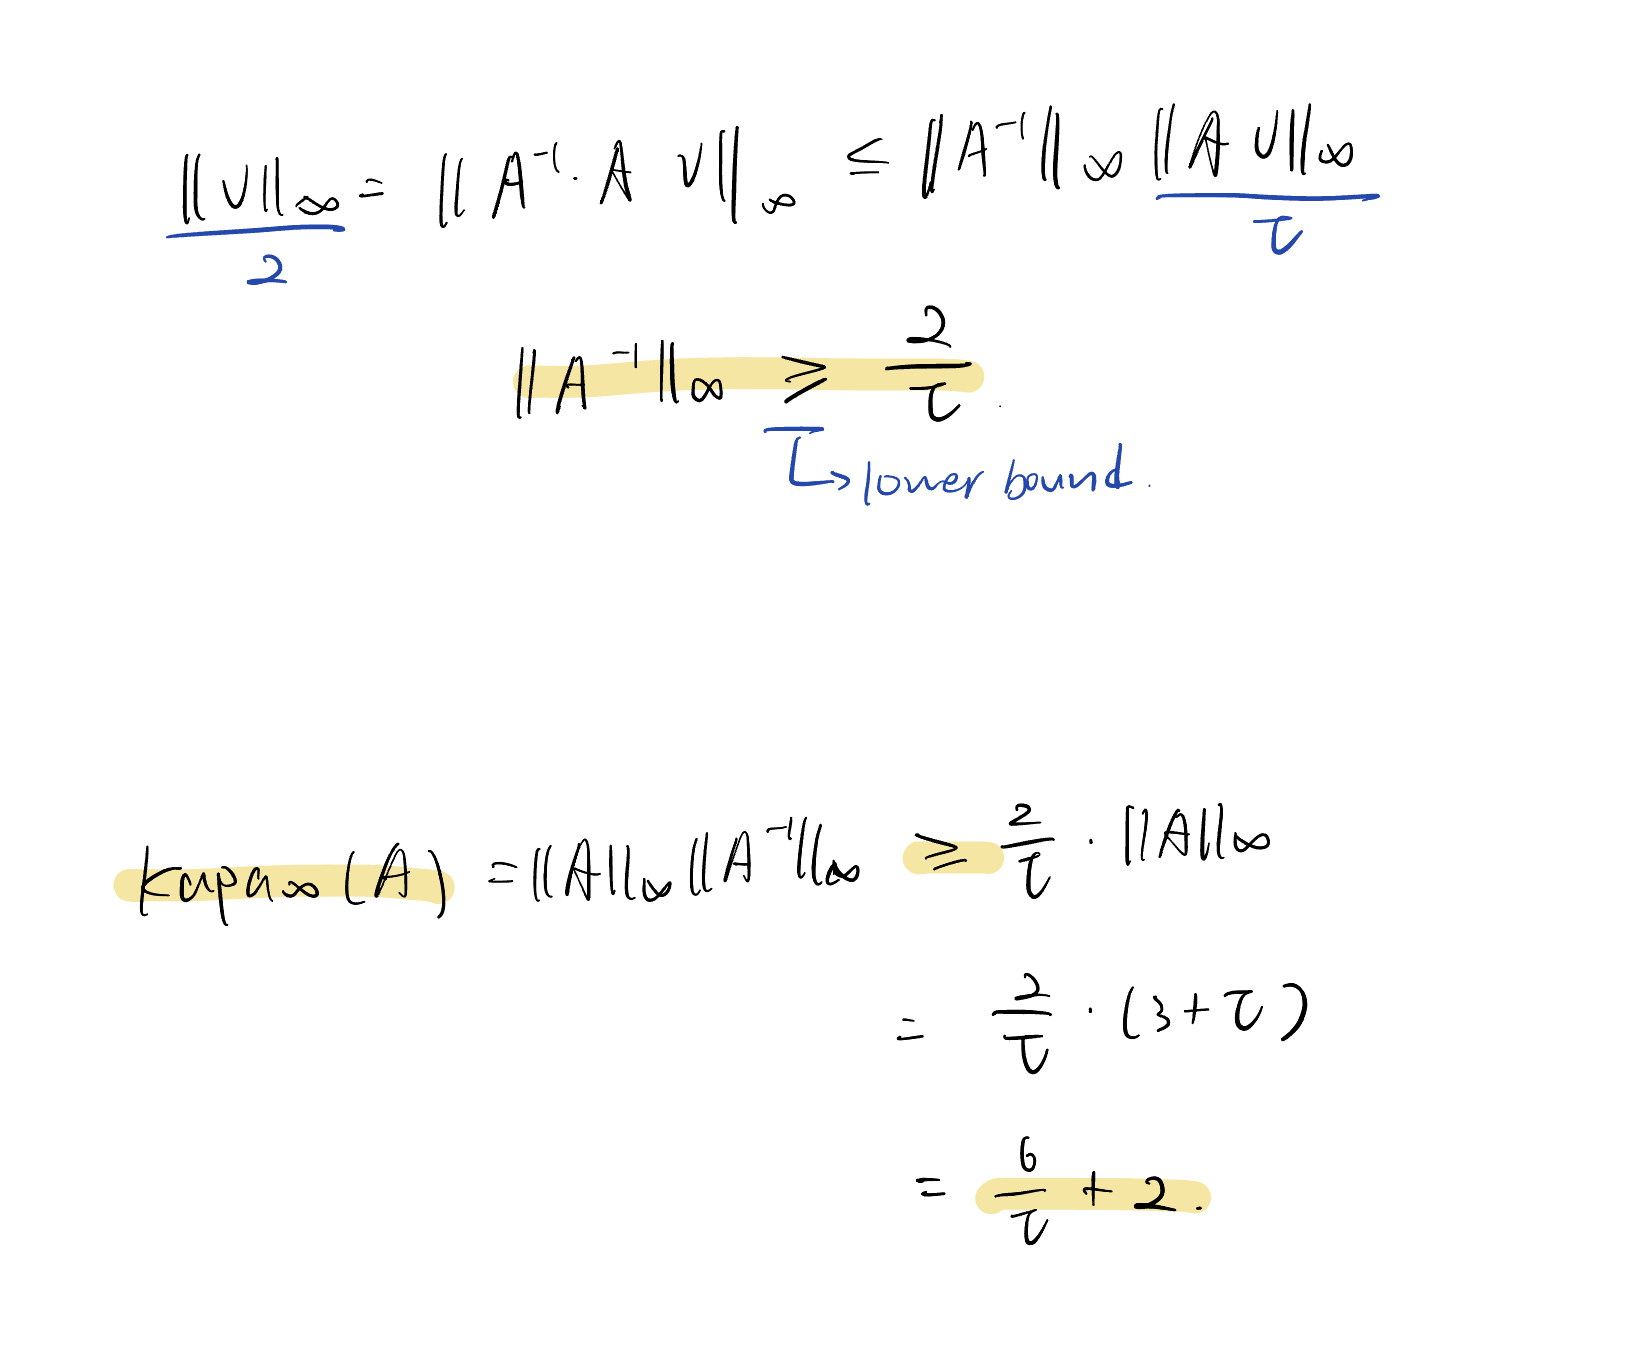 ‖V‖∞ = ‖A⁻¹·A V‖∞ ≤ ‖A⁻¹‖∞ ‖A V‖∞
2 τ
‖A⁻¹‖∞ ≥ 2/τ.
↳ lower bound.
kapa∞(A) = ‖A‖∞‖A⁻¹‖∞ ≥ 2/τ · ‖A‖∞
= 2/τ · (3+τ)
= 6/τ + 2.